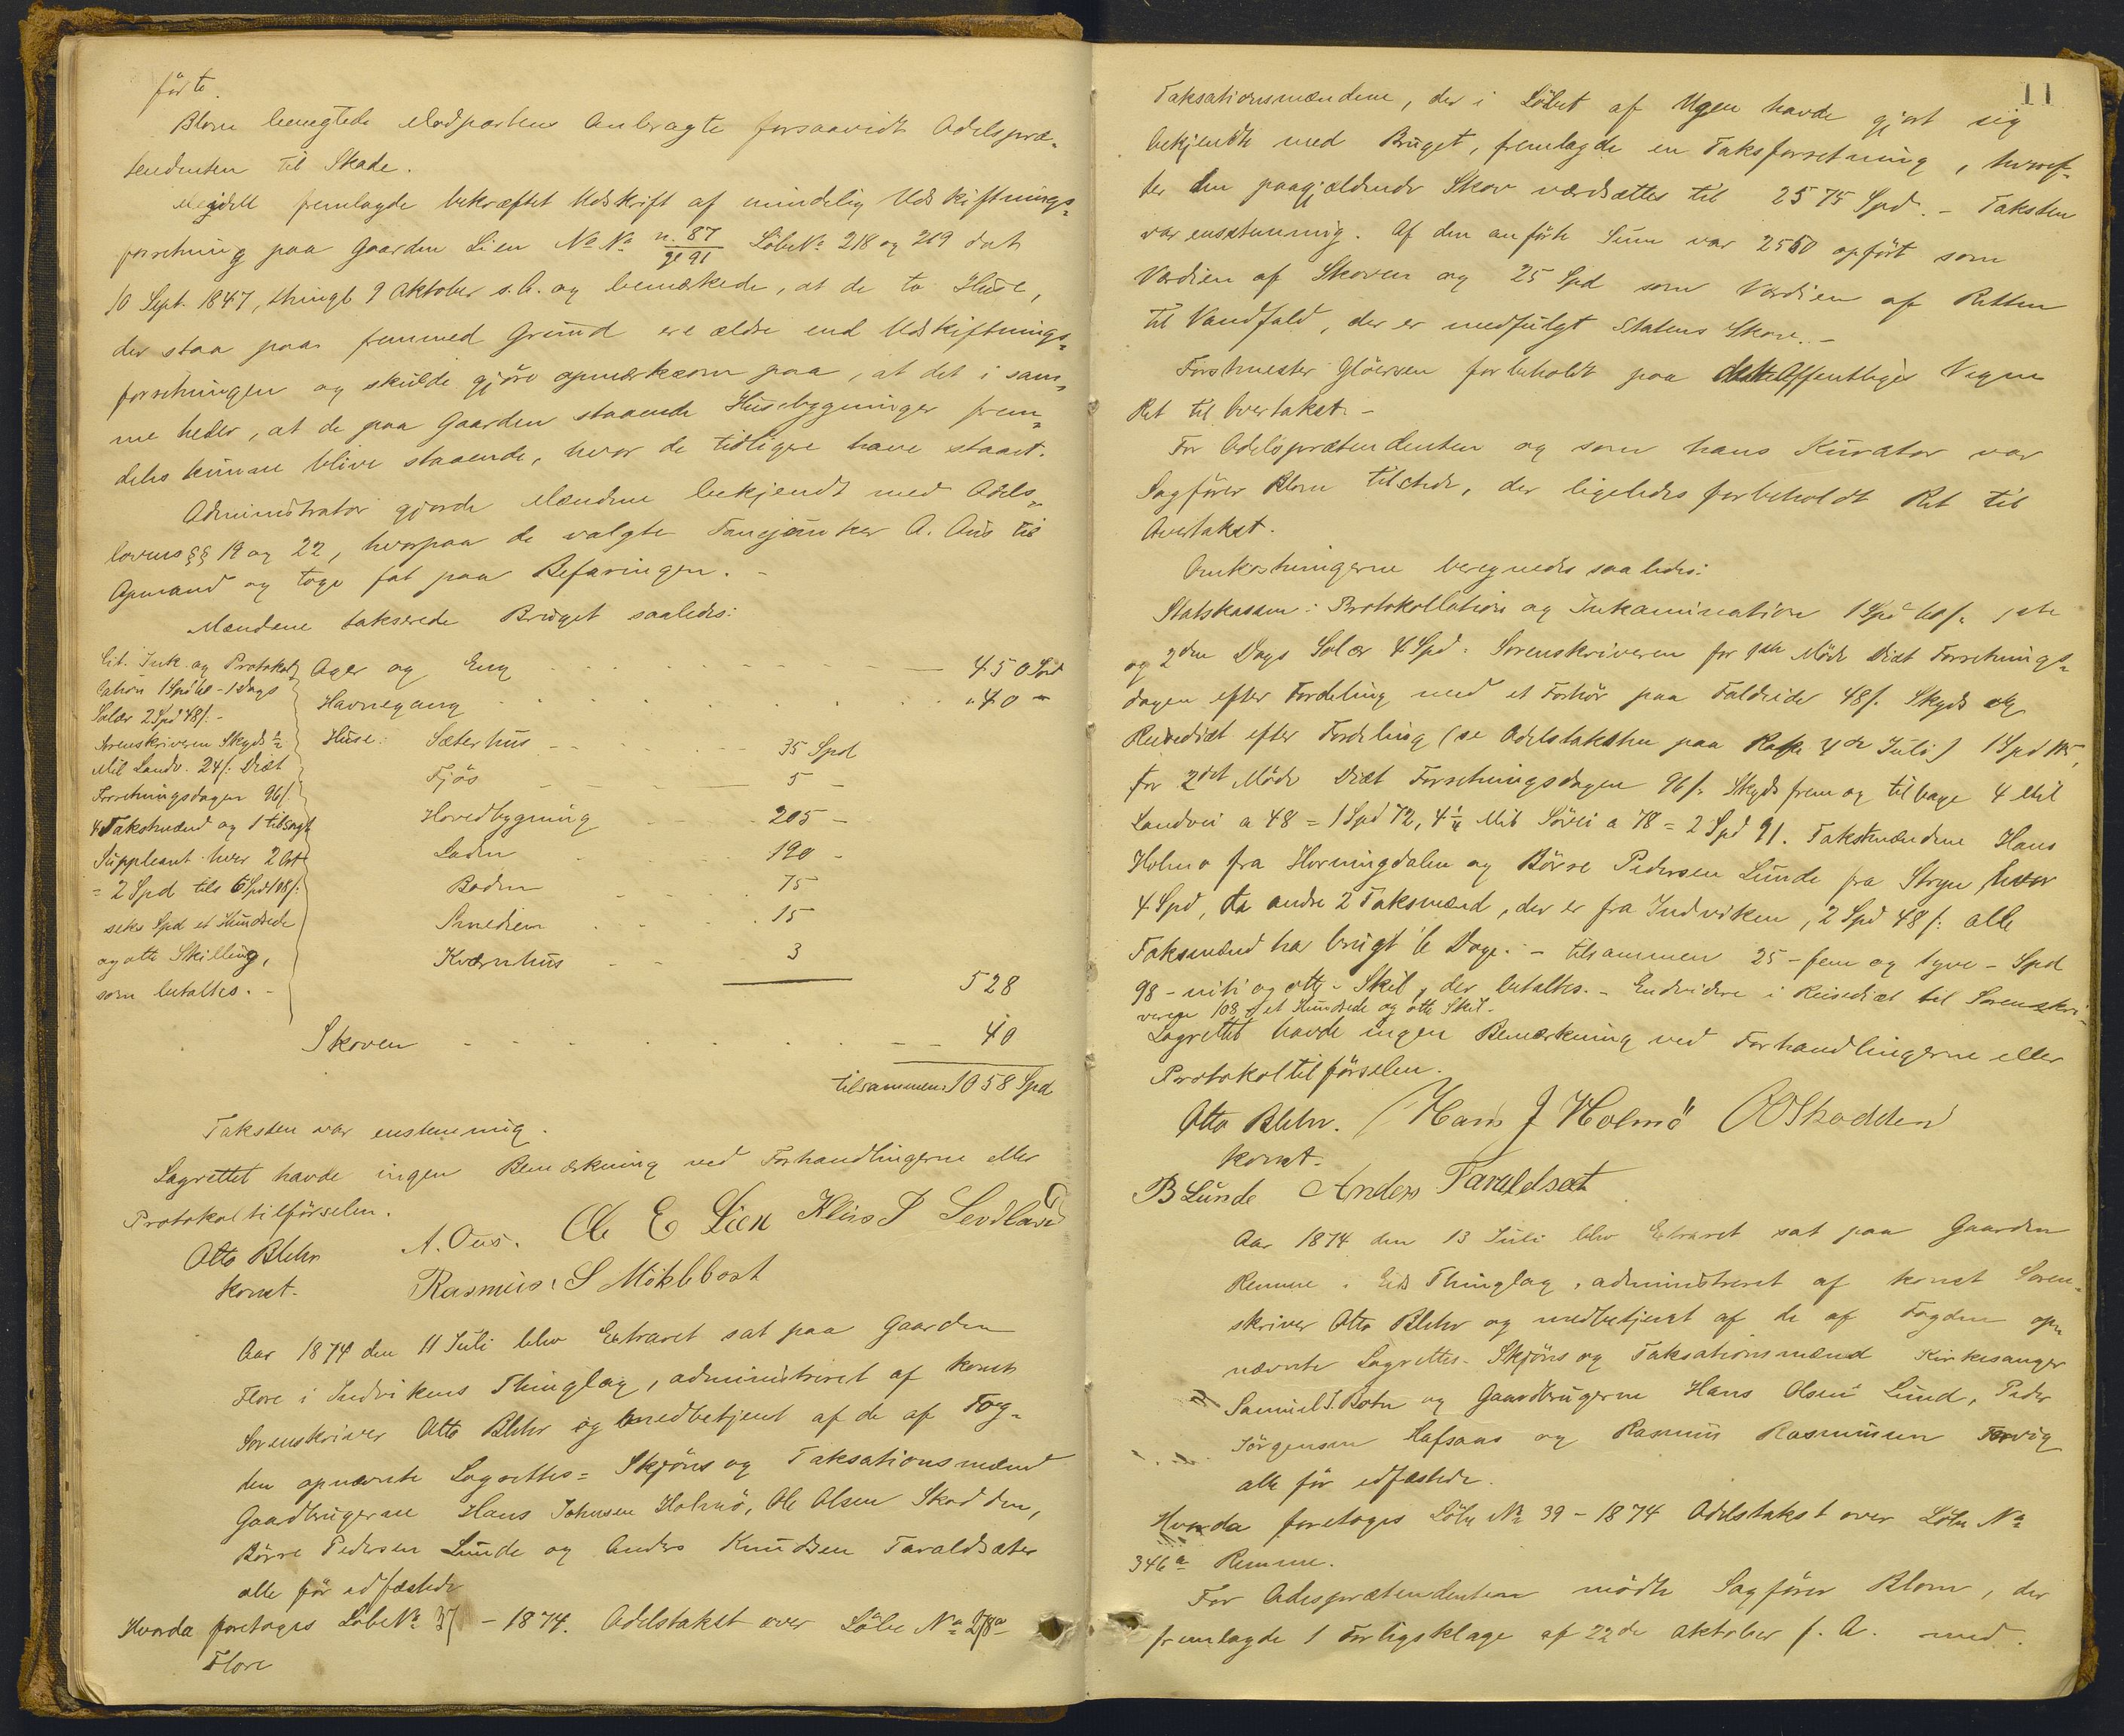 förte.
Blom benegtede Modpartens Anbragte forsaavidt Odelspræ-
tendenten til Skade.
Mejdell fremlagde bekræftet Udskrift af mindelig Udskiftnings=
forretning paa Gaarden Lien No No n. 87 / gl 91 Löbe No 218 og 219 dat
10 Sept. 1847, thingl 9 Oktober s. A. og bemærkede, at de to Huse,
der staa paa fremmed Grund ere ældre end Udskiftnings=
forretningen og skulde gjöre opmærksom paa, at det i sam=
me heder, at de paa Gaarden staaende Husebygninger frem=
deles kunne blive staaende, hvor de tidligere have staaet.
Administrator gjorde Mændene bekjendt med Odels=
lovens §§ 19 og 22, hvorpaa de valgte A. Aus til
Opmand og toge fat paa Befaringen. -
Mændene takserede Bruget saaledes:
Cit. Ink. og Protokol=
lation 1 Spd - 1 Dags
Salær 2 Spd 48/. -
Sorenskriveren Skyds ½
Mil Landv. 24/: Diæt
Forretningsdagen 96/.
4 Takstmænd og 1 tilsagt
Suppleant hver 2 Ort
= 2 Spd tils 6 Spd 108/:
seks Spd et Hundrede
og otte Skilling,
som betaltes. -
Ager og Eng - - - 450 Spd
Havnegang - - - " 40 -
Huse: Sæterhus - - - 35 Spd
Fjös - - - 5 -
Hovedbygning - - - 205 -
Laden - - - 190 -
Boden - - - 75
Smedien - - - 15
Kværnhus - - - 3
528
Skoven - - - 40
tilsammen: 1058 Spd
Taksten var enstemmig.
Lagrettet havde ingen Bemærkning ved Forhandlingerne eller
Protokoltilförselen.
Otto Blehr A. Ous. Ole E Lien Klaus S
konst. Rasmus S Möklebost
Aar 1874 den 11 Juli blev Extraret sat paa Gaarden
Flore i Indvikens Thinglag, administreret af konst
Sorenskriver Otto Blehr og medbetjent af de af Fog=
den opnævnte Lagrettes= Skjöns og Taksationsmænd
Gaardbrugerne Hans Johnsen Holmö, Ole Olsen Skodden,
Börre Pedersen Lunde og Anders Knudsen Taraldsæter
alle för edfæstede
Hvorda foretoges Löbe No 37 - 1874. Odelstakst over Löbe No 278a
Flore
11
Taksationsmændene, der i Löbet af Ugen havde gjort sig
bekjendte med Bruget, fremlagde en Taksforretning, hvoref=
ter den paagjældende Skov værdsættes til 2575 Spd. - Taksten
var enstemmig. Af den anförte Sum var 2550 opfört som
Værdien af Skoven og 25 Spd som Værdien af Retten
til Vandfald, der er medfulgt Statens Skove. -
Forstmester Glöersen forbeholdt paa det Offentliges Vegne
Ret til Overtakst -
For Odelsprætendenten og som hans Kurator var
Sagförer Blom tilstede, der ligeledes forbeholdt Ret til
Overtakst.
Omkostningerne beregnedes saaledes:
Statskassen: Protokollation og Inkamination 1 Spd 60/. 1ste
og 2den Dags Salær 4 Spd. Sorenskriveren for 1ste Möde Diæt Forretnings=
dagen efter Fordeling med et Forhör paa Faldeide 48/. Skyds og
Reisediæt efter Fordeling (se Odelstaksten paa 4de Juli) 1 Spd
for 2det Möde Diæt Forretningsdagen 96/. Skyds frem og tilbage 4 Mil
Landvei a 48 = 1 Spd 72, 4¼ Mil Sövei a 78 = 2 Spd 91. Takstmændene Hans
Holmö fra Horningdalen og Börre Pedersen Lunde fra Stryn hver
4 Spd, de andre 2 Taksmænd, der er fra Indviken, 2 Spd 48/: alle
Taksmænd har brugt Dage. - tilsammen 25 - fem og tyve - Spd
98 - niti og otte - Skil, der betaltes. - Endvidere i Reisediæt til Sorenskri-
veren 108 / et Hundrede og otte Skil.
Lagrettet havde ingen Bemærkning ved Forhandlingerne eller
Protokoltilförselen.
Otto Blehr. Hans J Holmö OO Skodden
konst.
B Lunde Anders Taraldsæt
Aar 1874 den 13 Juli blev Extraret sat paa Gaarden
Remme i Eids Thinglag, administreret af konst Soren-
skriver Otto Blehr og medbetjent af de af Fogden op=
nævnte Lagrettes- Skjöns og Taksationsmænd Kirkesanger
Samuel J. Botn og Gaardbrugerne Hans Olsen Lund, Peder
Jörgensen Hafsaas og Rasmus Rasmussen
alle för edfæstede.
Hvorda foretoges Löbe No 39 - 1874 Odelstakst over Löbe No
346a Remme.
For Odelsprætendenten mödte Sagförer Blom, der
fremlagde 1 Forligsklage af 22de Oktober f. A. med